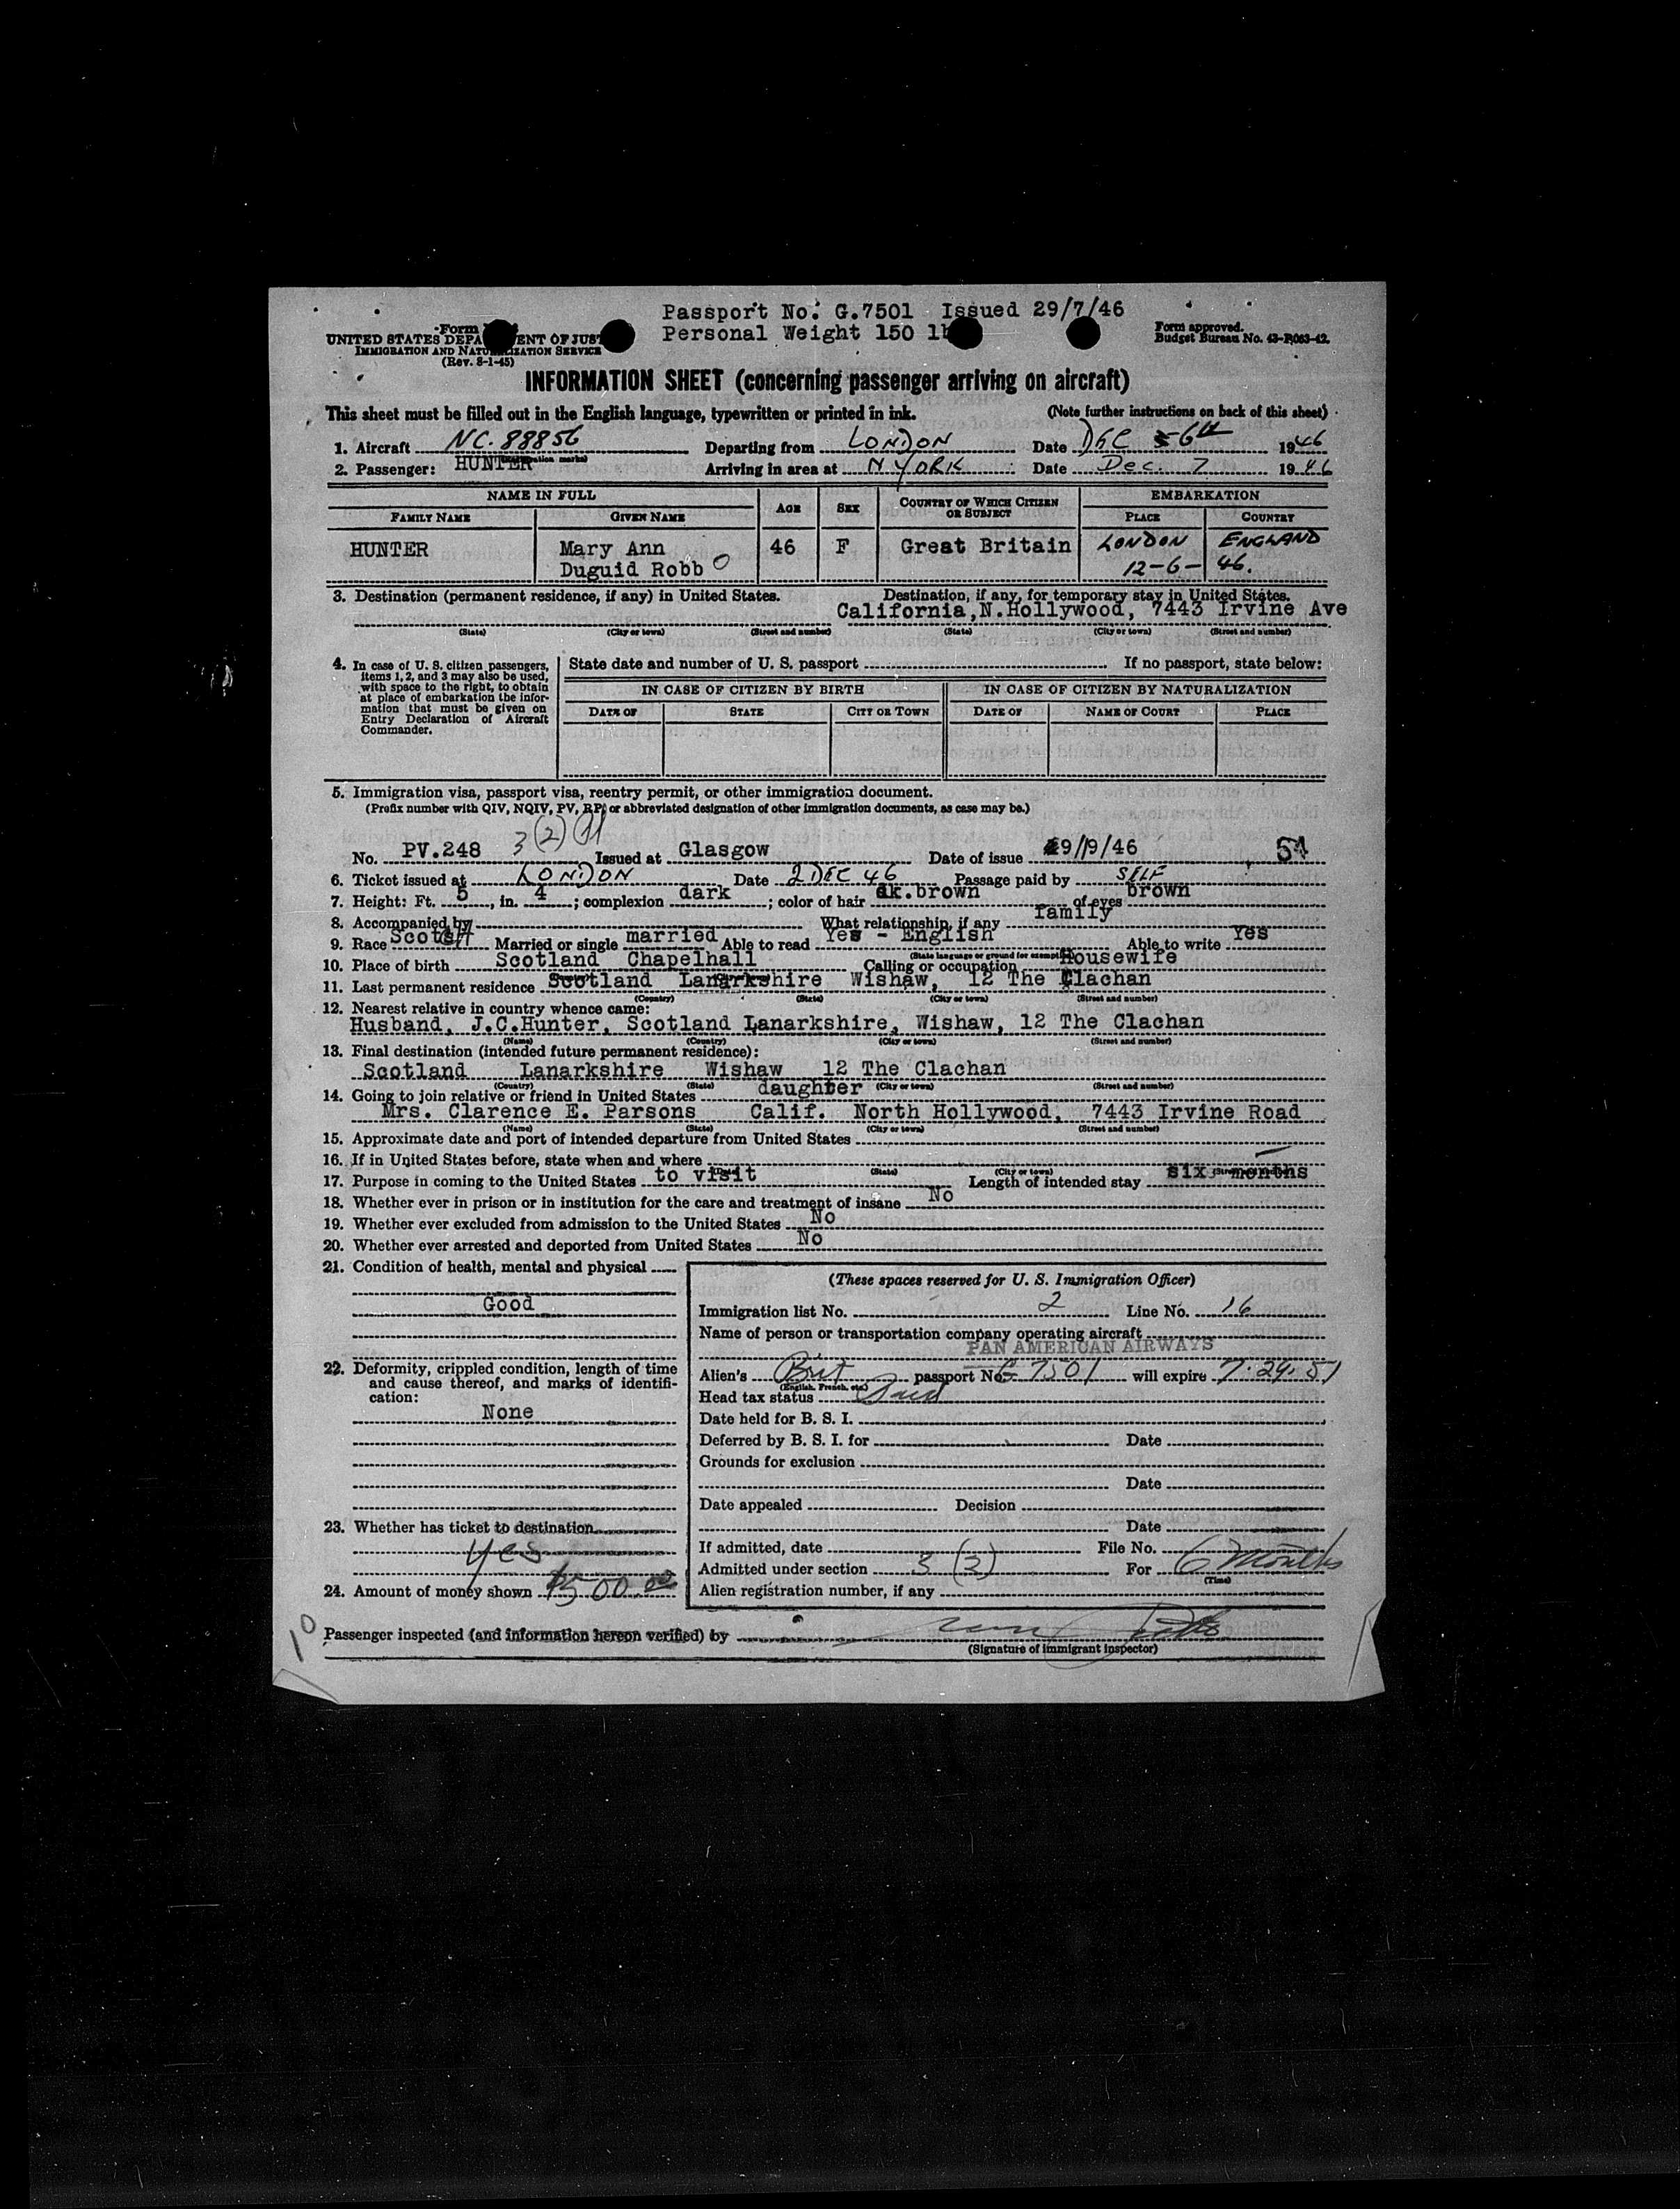 Passport No. G.7501 Issued 29/7/46
Personal Weight 150
Form
UNITED STATES
IMMIGRATION AND NATURALIZATION SERVICE
(Rev. 8-1-45)
Form approved.
Budget Bureau No. 43-R063-42.
INFORMATION SHEET (concerning passenger arriving on aircraft)
This sheet must be filled out in the English language, typewritten or printed in ink. (Note further instructions on back of this sheet)
1. Aircraft NC. 88856 Departing from LONDON Date DEC 6th 1946
2. Passenger: HUNTER Arriving in area at N YORK Date Dec. 7 1946
NAME IN FULL AGE SEX COUNTRY OF WHICH CITIZEN OR SUBJECT EMBARKATION
FAMILY NAME GIVEN NAME PLACE COUNTRY
HUNTER Mary Ann 46 F Great Britain LONDON ENGLAND
Duguid Robb 12-6- 46.
3. Destination (permanent residence, if any) in United States. Destination, if any, for temporary stay in United States.
California, N.Hollywood, 7443 Irvine Ave
(State) (City or town) (Street and number) (State) (City or town) (Street and number)
4. In case of U. S. citizen passengers, items 1, 2, and 3 may also be used, with space to the right, to obtain at place of embarkation the information that must be given on Entry Declaration of Aircraft Commander.
State date and number of U. S. passport If no passport, state below:
IN CASE OF CITIZEN BY BIRTH IN CASE OF CITIZEN BY NATURALIZATION
DATE OF STATE CITY OR TOWN DATE OF NAME OF COURT PLACE
5. Immigration visa, passport visa, reentry permit, or other immigration document.
(Prefix number with QIV, NQIV, PV, RP, or abbreviated designation of other immigration documents, as case may be.)
3 (2)
No. PV.248 Issued at Glasgow Date of issue /9/46
6. Ticket issued at LONDON Date 2 DEC 46 Passage paid by SELF
7. Height: Ft. 5, in. 4; complexion dark; color of hair dk.brown of eyes brown
8. Accompanied by What relationship, if any family
9. Race Scotch Married or single married Able to read Yes - English Able to write Yes
(State language or ground for exemption)
10. Place of birth Scotland Chapelhall Calling or occupation Housewife
11. Last permanent residence Scotland Lanarkshire Wishaw, 12 The Clachan
(Country) (State) (City or town) (Street and number)
12. Nearest relative in country whence came:
Husband, J.C.Hunter, Scotland Lanarkshire, Wishaw, 12 The Clachan
(Name) (Country) (City or town) (Street and number)
13. Final destination (intended future permanent residence):
Scotland Lanarkshire Wishaw 12 The Clachan
(Country) (State) (City or town) (Street and number)
14. Going to join relative or friend in United States daughter
Mrs. Clarence E. Parsons Calif. North Hollywood, 7443 Irvine Road
(Name) (State) (City or town) (Street and number)
15. Approximate date and port of intended departure from United States
16. If in United States before, state when and where
(State) (City or town)
17. Purpose in coming to the United States to visit Length of intended stay six months
18. Whether ever in prison or in institution for the care and treatment of insane No
19. Whether ever excluded from admission to the United States No
20. Whether ever arrested and deported from United States No
21. Condition of health, mental and physical
Good
22. Deformity, crippled condition, length of time and cause thereof, and marks of identification:
None
23. Whether has ticket to destination
yes
24. Amount of money shown $500.00
(These spaces reserved for U. S. Immigration Officer)
Immigration list No. 2 Line No. 16
Name of person or transportation company operating aircraft
PAN AMERICAN AIRWAYS
Alien's Brit passport No. G 7501 will expire 7-29-51
(English, French, etc.)
Head tax status Paid
Date held for B. S. I.
Deferred by B. S. I. for Date
Grounds for exclusion
Date
Date appealed Decision
Date
If admitted, date File No.
Admitted under section 3 (2) For 6 Months
(Time)
Alien registration number, if any
10
Passenger inspected (and information hereon verified) by
(Signature of immigrant inspector)